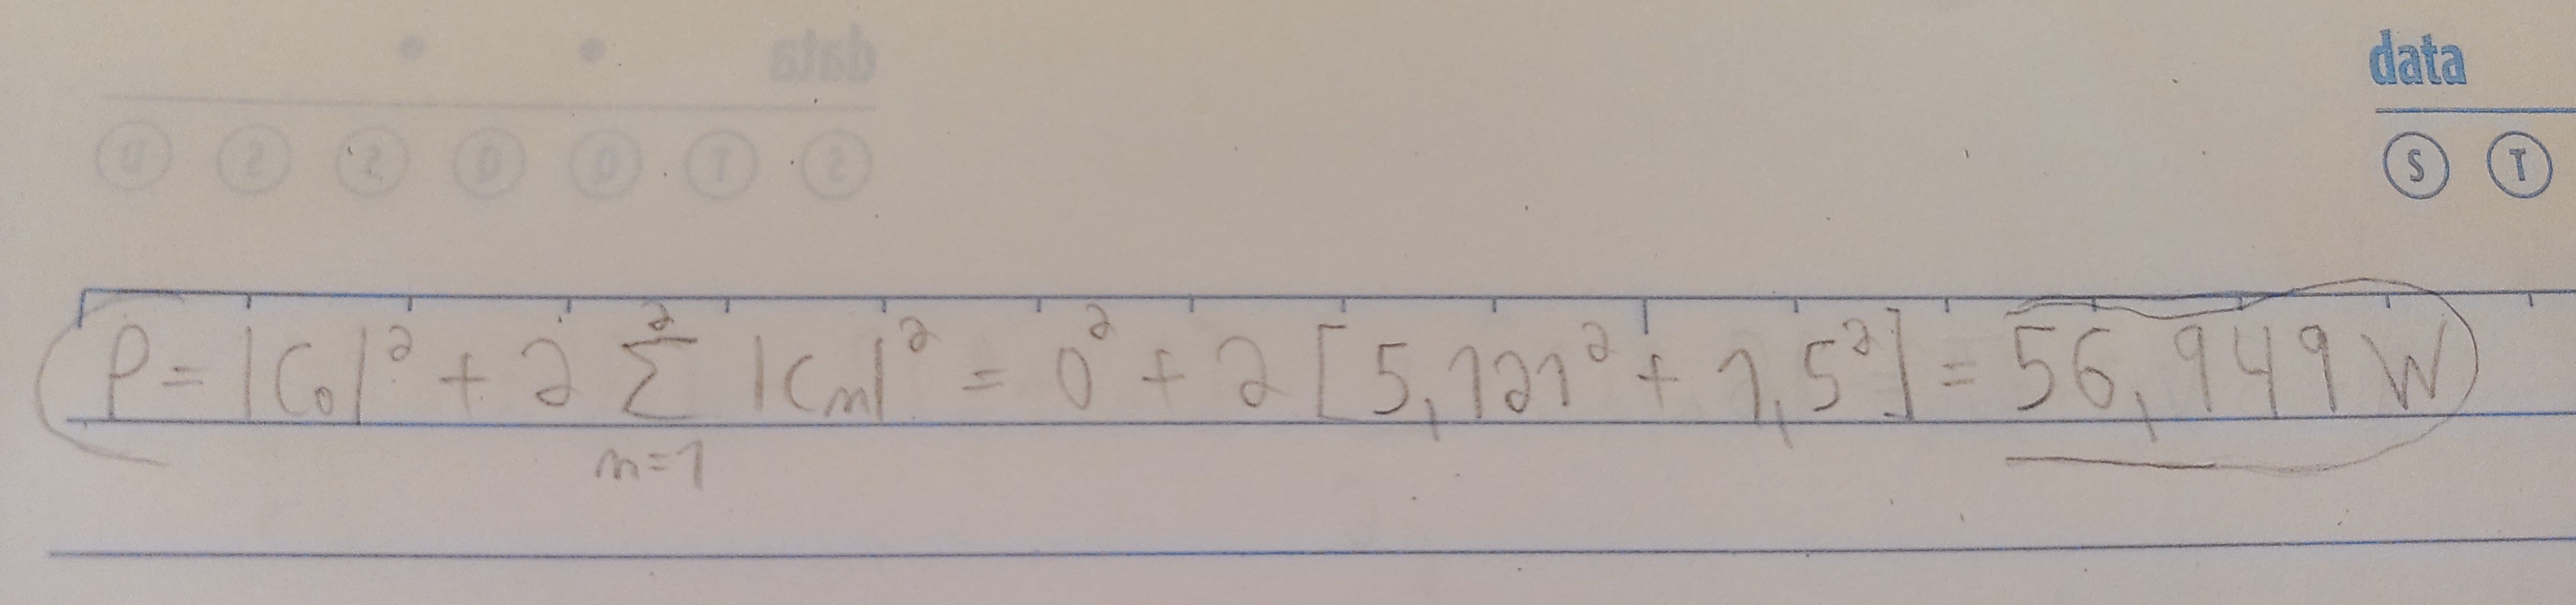 data
S T
P = |C₀|² + 2 Σ²ₙ₌₁ |Cₙ|² = 0² + 2 [5,121² + 1,5²] = 56,949 W